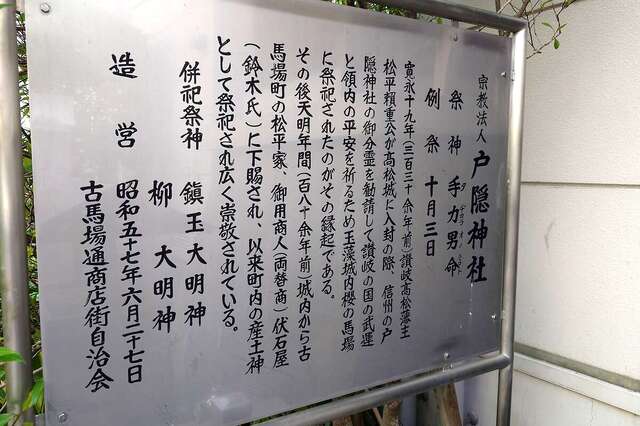 宗教法人 戸隠神社
祭神 手力男命
タヂカラヲノミコト
例祭 十月三日
寛永十九年(三百三十余年前)讃岐高松藩主
松平頼重公が高松城に入封の際、信州の戸
隠神社の御分霊を勧請して讃岐の国の武運
と領内の平安を祈るため玉藻城内櫻の馬場
に祭祀されたのがその縁起である。
その後天明年間(百八十余年前)城内から古
馬場町の松平家、御用商人(両替商)伏石屋
(鈴木氏)に下賜され、以来町内の産土神
として祭祀され広く崇敬されている。
併祀祭神 鎮玉大明神
柳大明神
造営 昭和五十七年六月二十七日
古馬場通商店街自治会